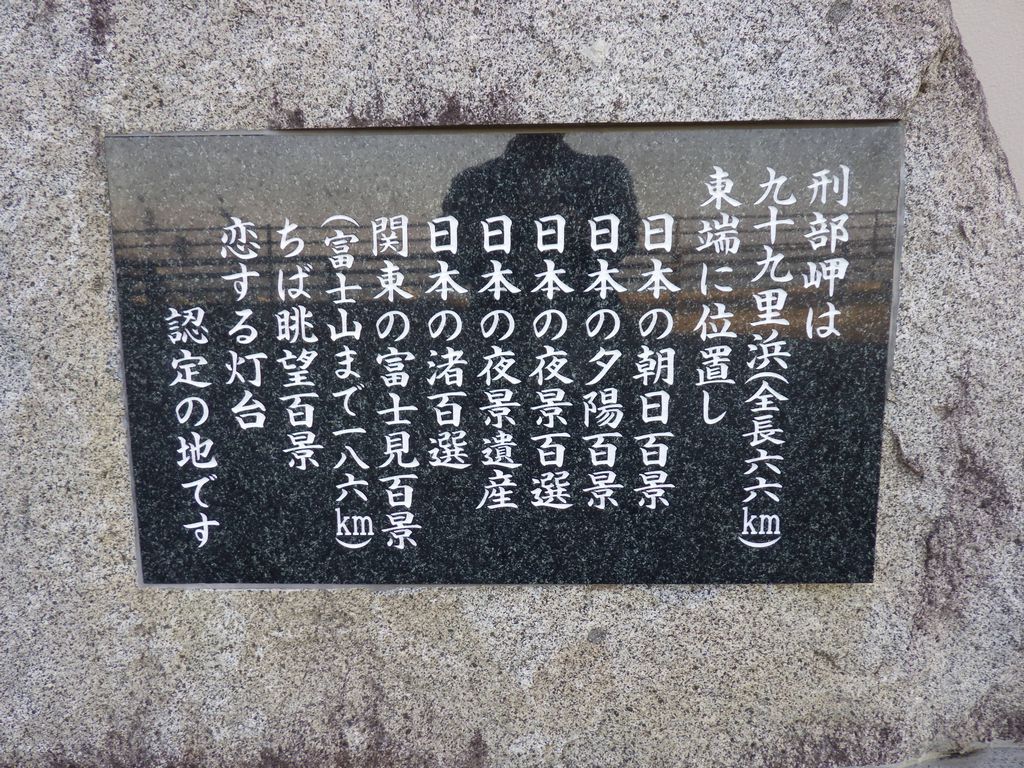 刑部岬は
九十九里浜(全長六六km)
東端に位置し
日本の朝日百景
日本の夕陽百景
日本の夜景百選
日本の夜景遺産
日本の渚百選
関東の富士見百景
(富士山まで一八六km)
ちば眺望百景
恋する灯台
認定の地です